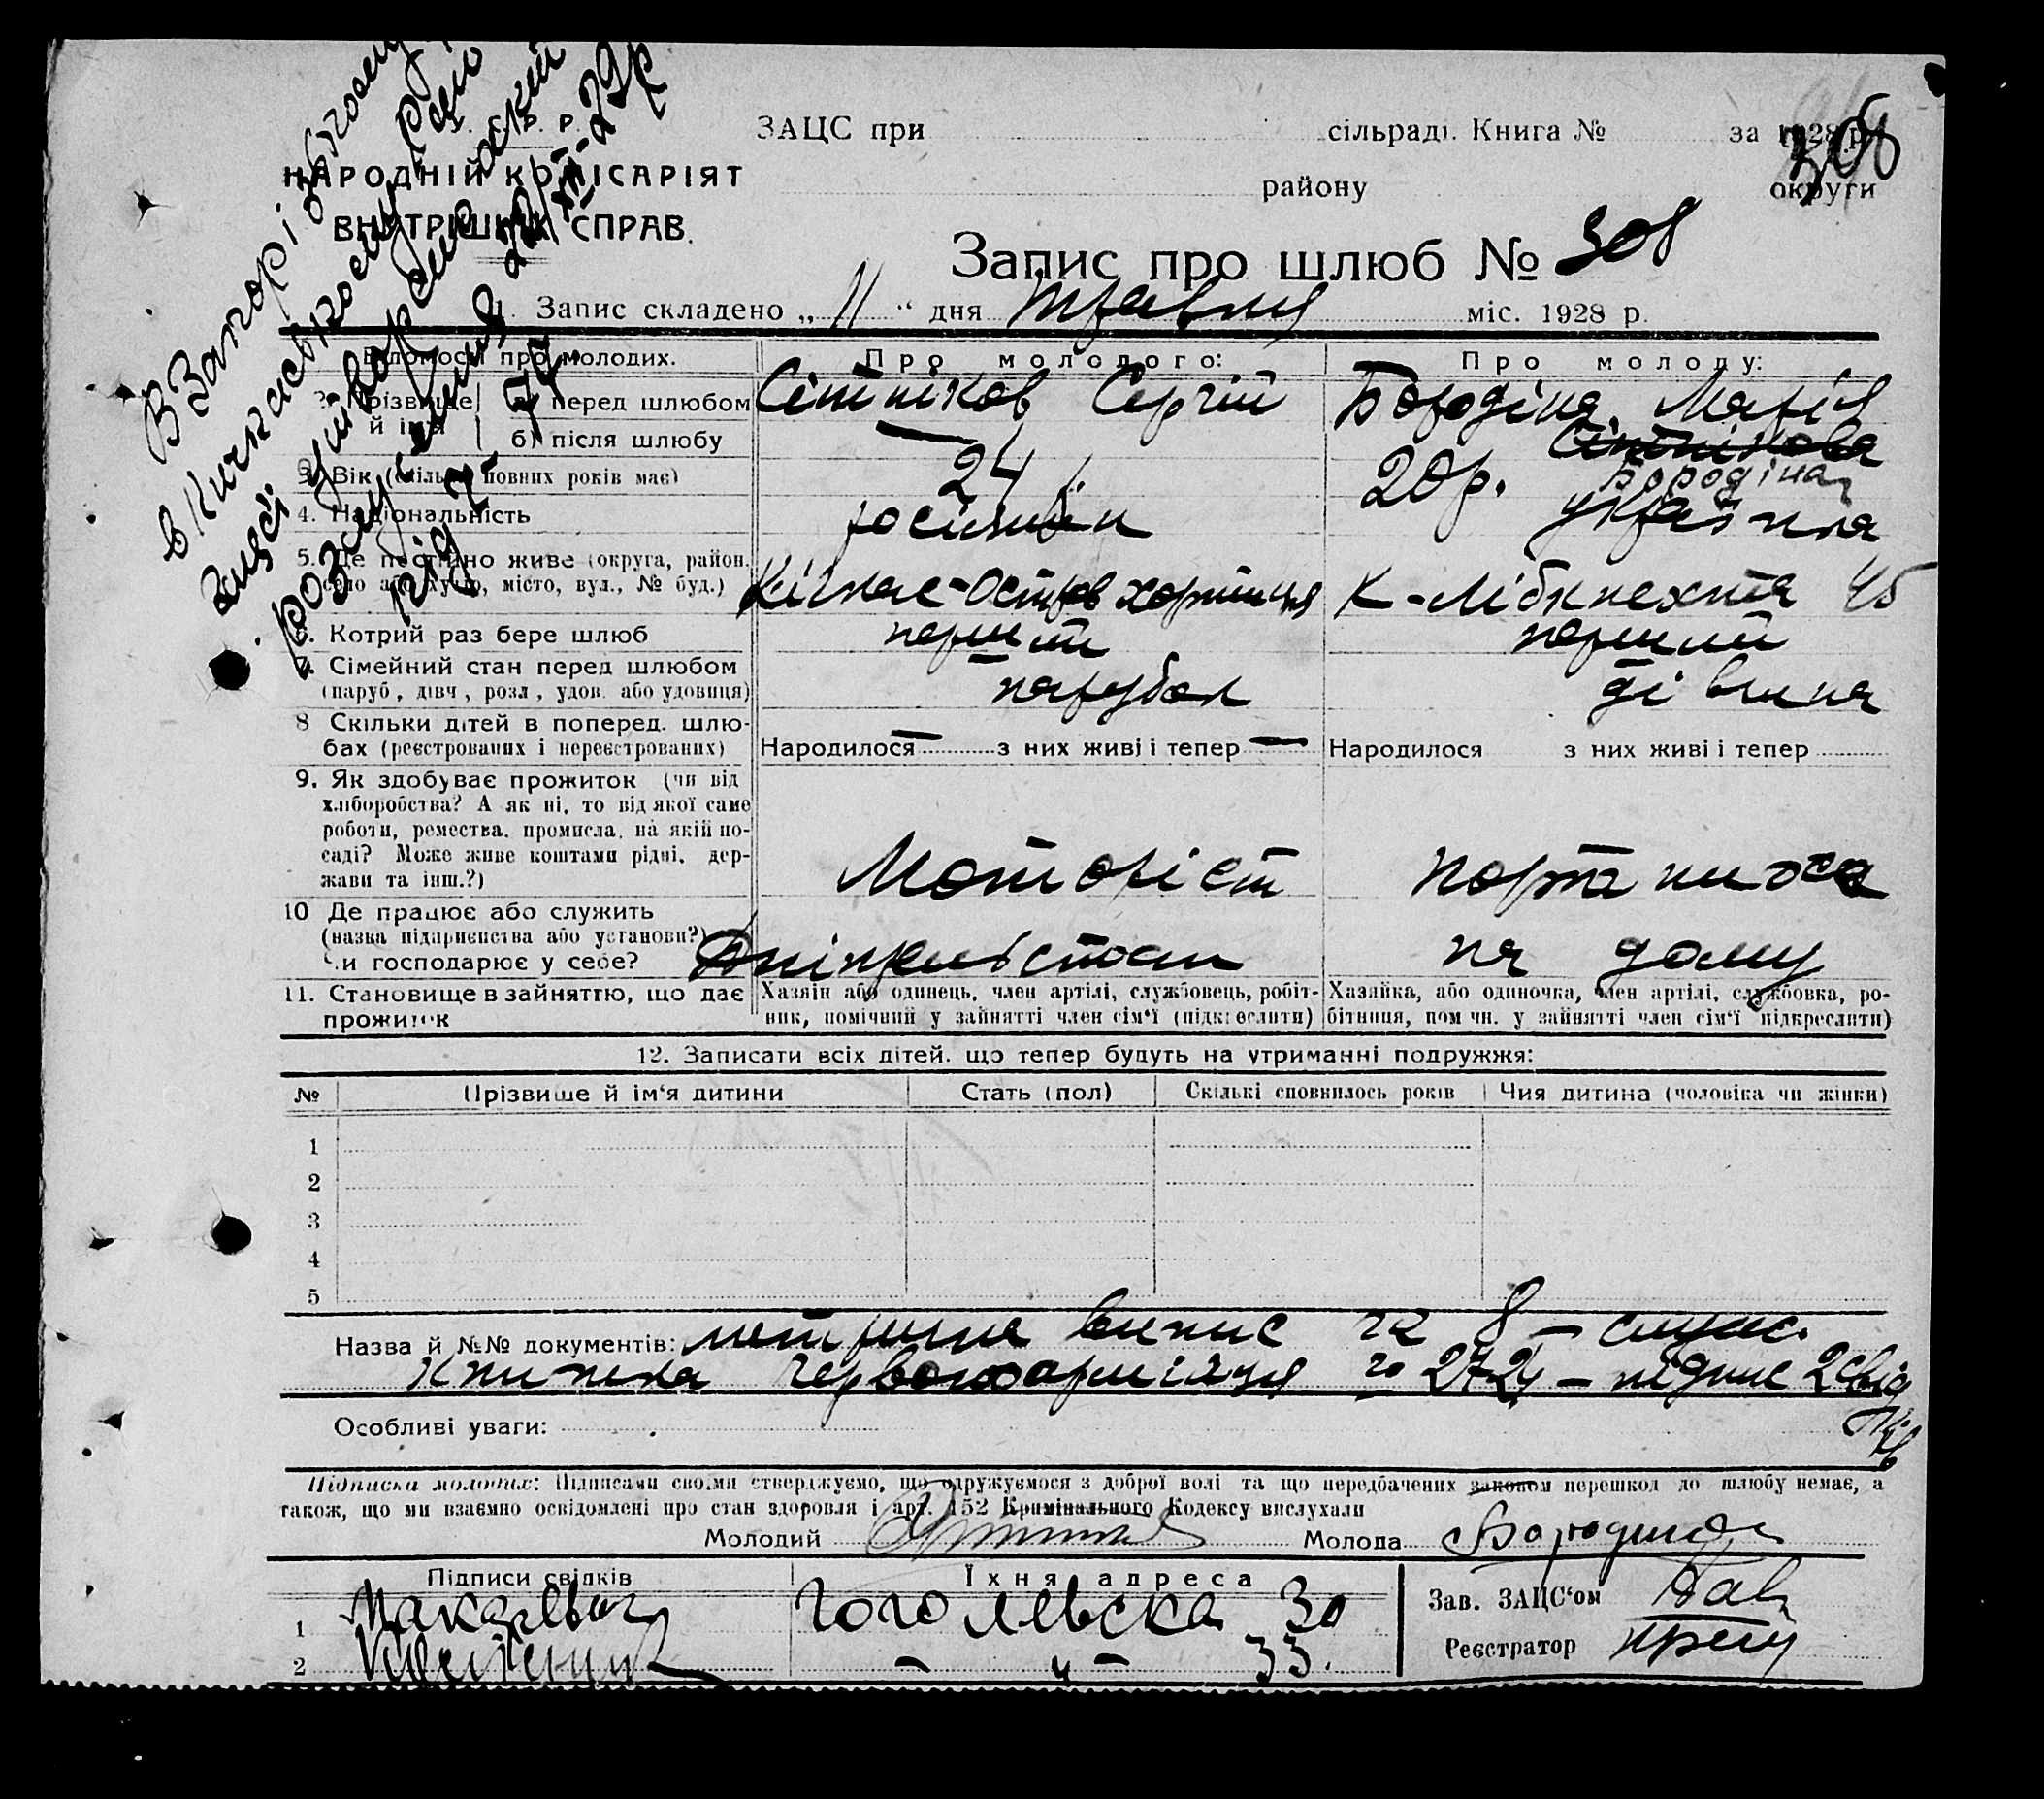 У. С. Р. Р.
НАРОДНІЙ КОМІСАРІЯТ
ВНУТРІШНІХ СПРАВ.
ЗАЦС при сільраді. Книга № за 1928 р.
району округи
308
Запис про шлюб № 308
1. Запис складено „ 11 “ дня травня міс. 1928 р.
Відомості про молодих. Про молодого: Про молоду:
2. Прізвище й ім'я а) перед шлюбом Сітніков Сергій Бородіна Марія
б) після шлюбу — Сітнікова Бородіна
3. Вік (скільки повних років має) 24 р. 20 р.
4. Національність росіянин українка
5. Де постійно живе (округа, район, село або хутір, місто, вул., № буд.) Кічкас-Остров Хортиця К-Лібкнехта 45
6. Котрий раз бере шлюб перший перший
7. Сімейний стан перед шлюбом (паруб., дівч., розл., удов. або удовиця) парубок дівчина
8 Скільки дітей в поперед. шлюбах (реєстрованих і нереєстрованих) Народилося — з них живі і тепер — Народилося з них живі і тепер
9. Як здобуває прожиток (чи від
хліборобства? А як ні, то від якої саме
роботи, ремества, промисла, на якій по-
саді? Може живе коштами рідні, дер-
жави та інш.?) Моторіст портниха
10 Де працює або служить
(назва підприємства або установи?)
Чи господарює у себе? Дніпрельстан на дому
11. Становище в зайняттю, що дає прожиток
Хазяін або одинець, член артілі, службовець, робіт-
ник, помічний у зайнятті член сім'ї (підкреслити)
Хазяйка, або одиночка, член артілі, службовка, ро-
бітниця, пом чн. у зайнятті член сім'ї підкреслити)
12. Записати всіх дітей, що тепер будуть на утриманні подружжя:
№ Прізвище й ім'я дитини Стать (пол) Скількі сповнилось років Чия дитина (чоловіка чи жінки)
1
2
3
4
5
Назва й №№ документів: метрична випис за 8 —
книжка червоноармійця за 2724 — підпис 2 свід
Особливі уваги:
Підписка молодих: Підписами своїми стверджуємо, що одружуємося з доброї волі та що передбачених законом перешкод до шлюбу немає, а
також, що ми взаємно освідомлені про стан здоровля і арт. 152 Кримінального Кодексу вислухали
Молодий Молода Бородина
Підписи свідків Їхня адреса
1 Гоголевська 30
2 — „ — 33.
Зав. ЗАЦС'ом
Реєстратор